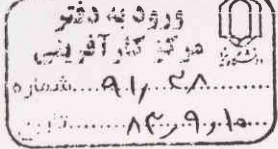 ورود به دفتر
مرکز کارآفرینی
شماره ۹۱٫۳۸
تاریخ ۸۳٫۹٫۱۰